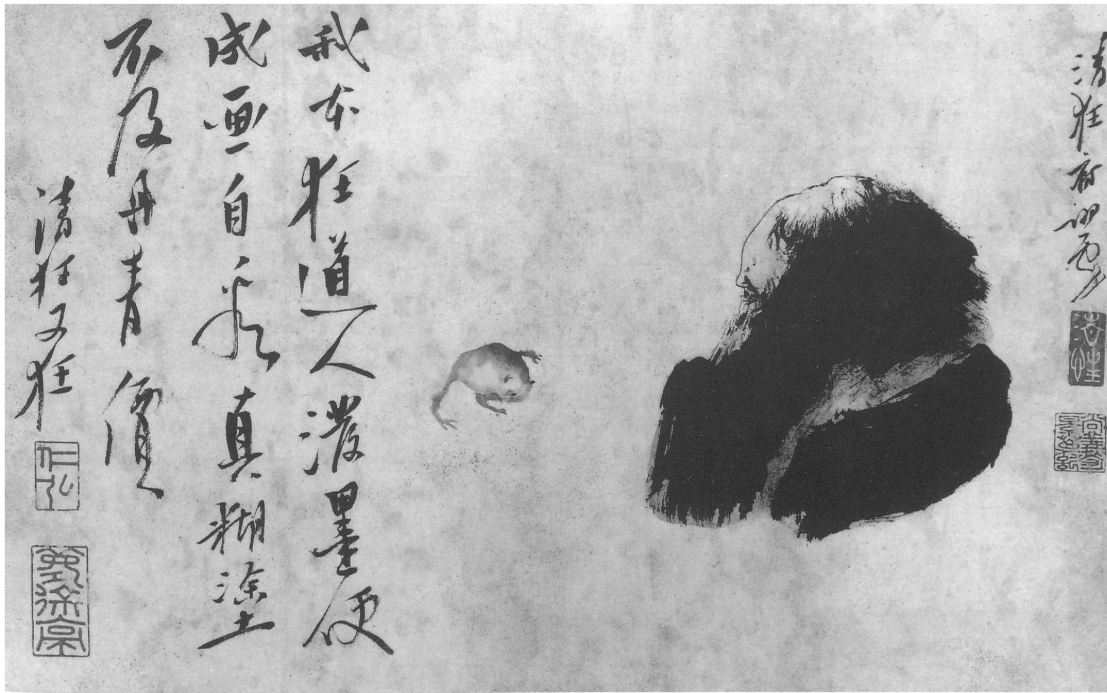 清狂
我本狂道人潑墨便
成画自看真糊塗
不及丹青價
清狂又狂